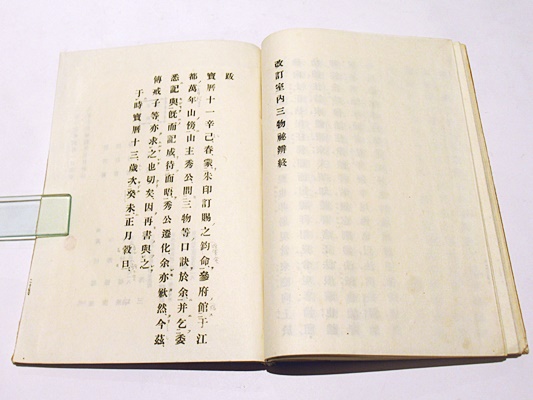 改訂室内三物祕辨終
跋
寶曆十一辛己春蒙朱印訂賜之鈞命參府館于江
都萬年山傍山主秀公問三物等口訣於余并乞委
悉記與旣而記成待而唔秀公遷化余亦歉然今茲
傳戒子等亦求之也切矣因再書與之
于時寶曆十三歲次癸未正月穀旦